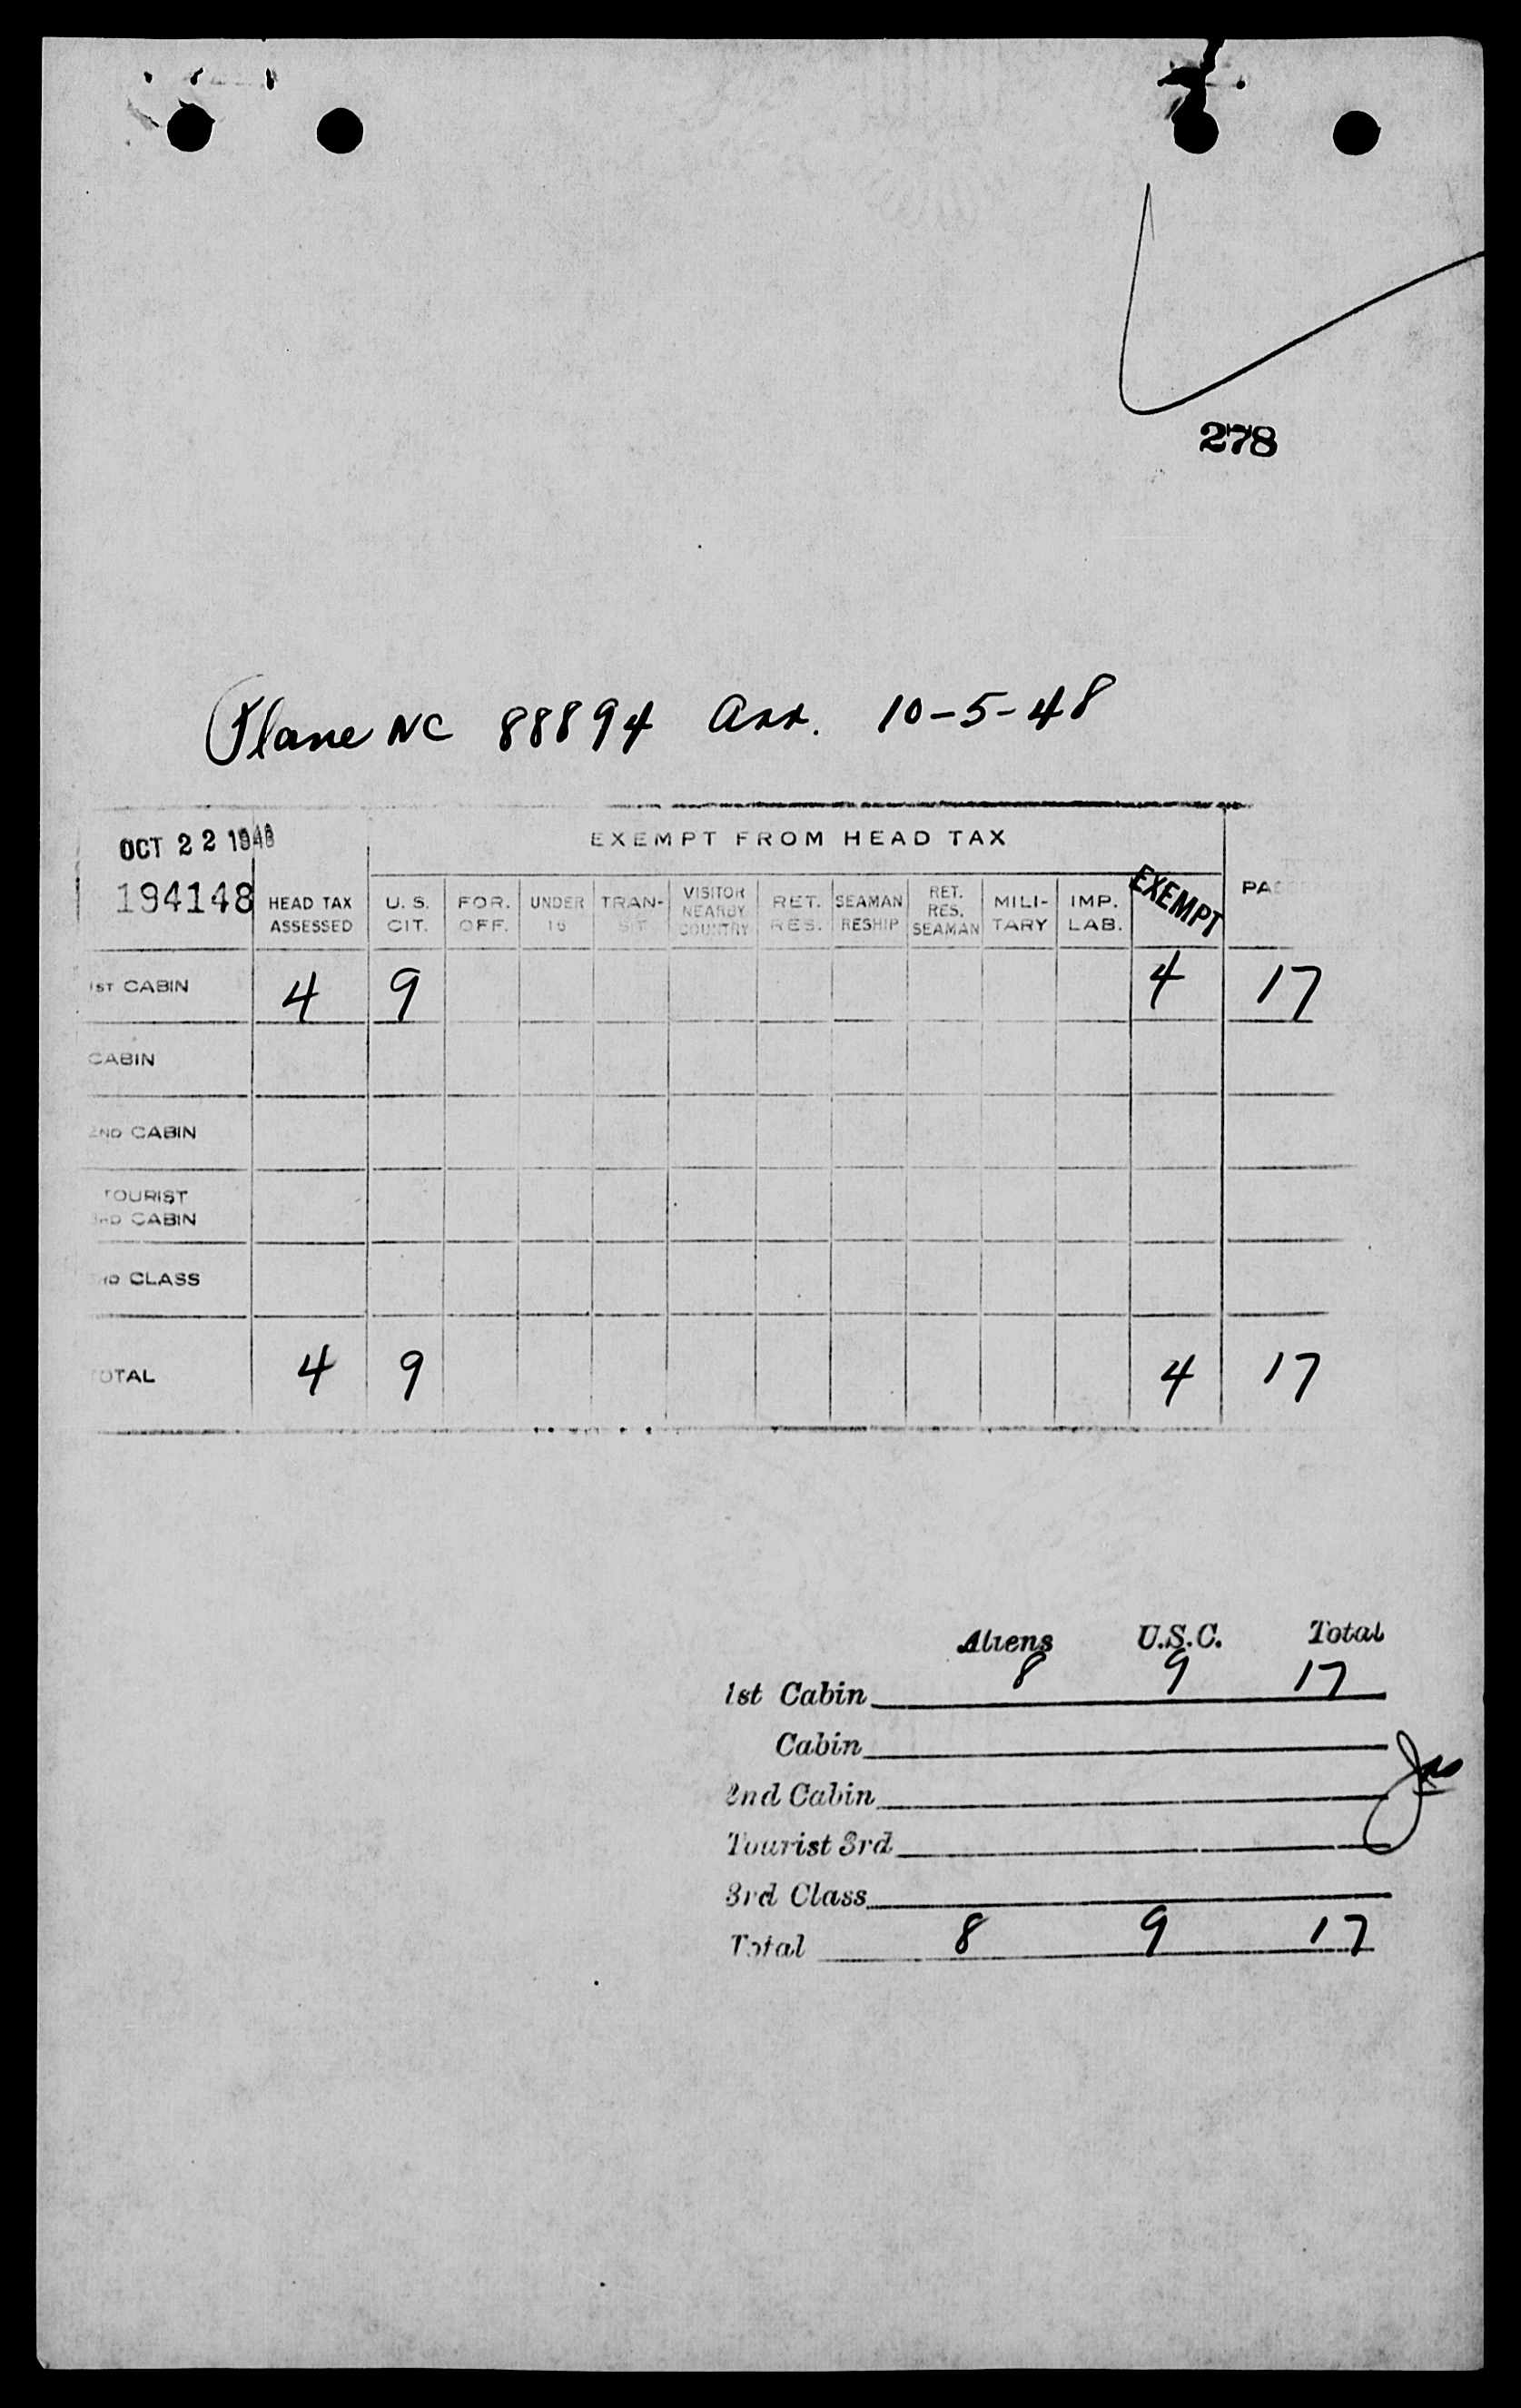 278
Plane NC 88894 Arr. 10-5-48
OCT 22 1948
194148
EXEMPT FROM HEAD TAX
HEAD TAX ASSESSED
U. S. CIT.
FOR. OFF.
UNDER 16
TRAN-SIT
VISITOR NEARBY COUNTRY
RET. RES.
SEAMAN RESHIP
RET. RES. SEAMAN
MILI-TARY
IMP. LAB.
EXEMPT
1ST CABIN 4 9 4 17
CABIN
2ND CABIN
TOURIST
3RD CABIN
CLASS
TOTAL 4 9 4 17
Aliens U.S.C. Total
1st Cabin 8 9 17
Cabin
2nd Cabin
Tourist 3rd
3rd Class
Total 8 9 17